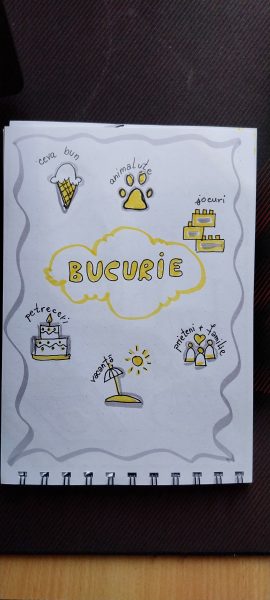 ceva bun
animaluțe
jocuri
BUCURIE
petreceri
vacanță
prieteni + familie